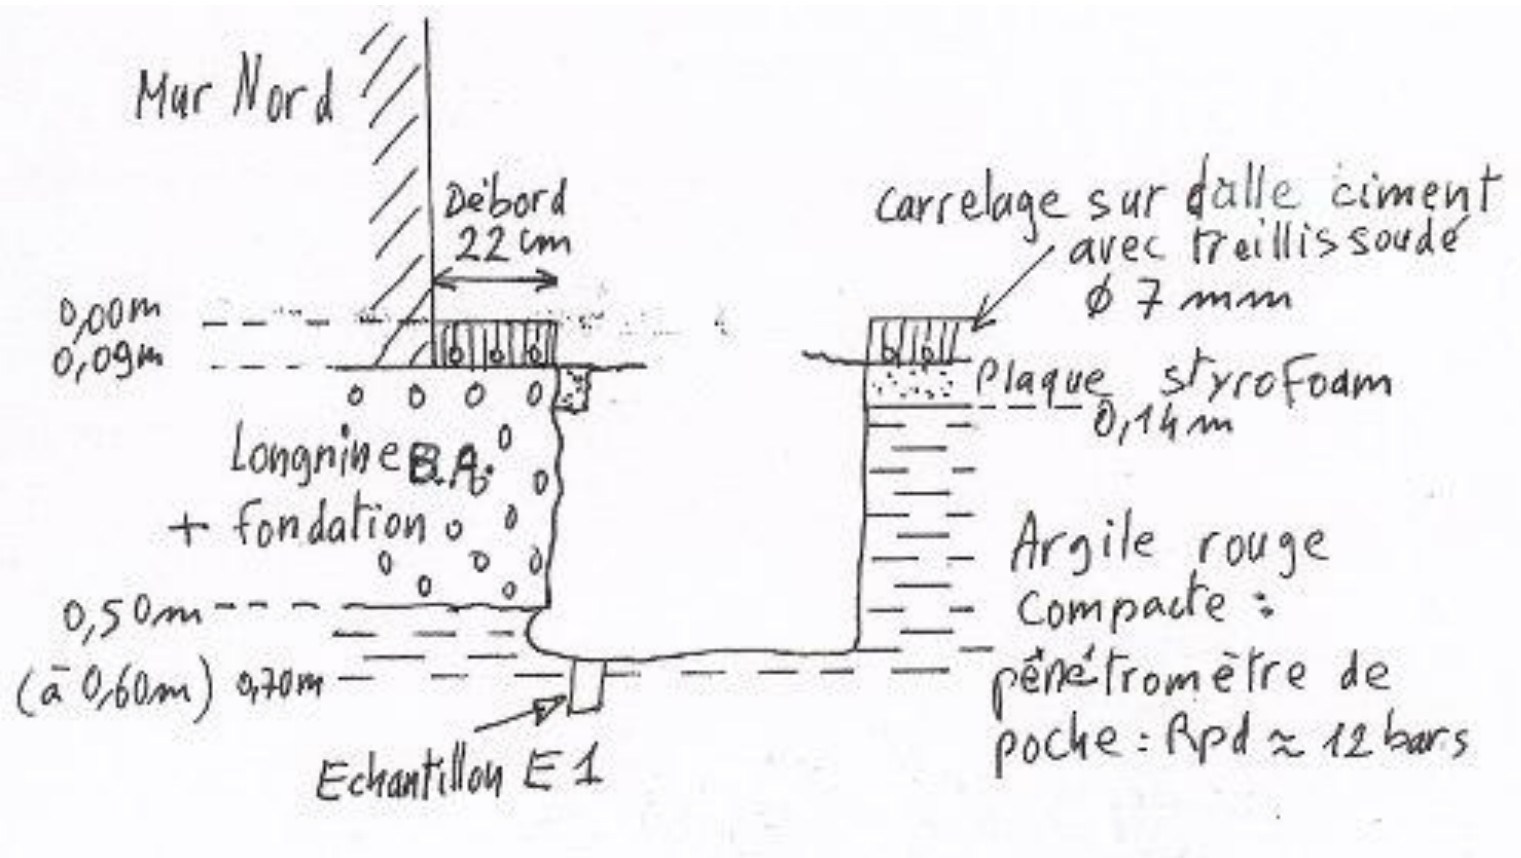 Mur Nord
Débord
22 cm
carrelage sur dalle ciment
avec treillis soudé
φ 7 mm
0,00m
0,09m
Plaque styrofoam
0,14m
Longnine B.A.
+ fondation
Argile rouge
compacte :
pénétromètre de
poche : Rpd ≈ 12 bars
0,50m
(à 0,60m) 0,70m
Echantillon E1